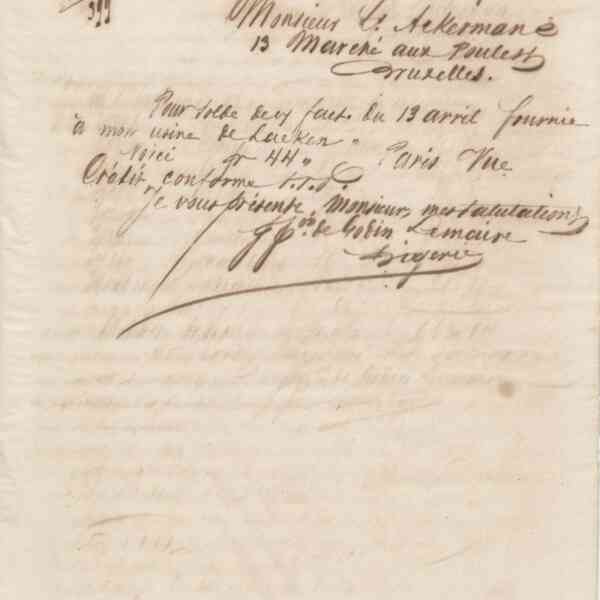 399
Monsieur Ct. Ackermané
13 Marché aux Poulets
Bruxelles.
Pour solde de v/ fact. du 13 avril fournie
à mon usine de Laeken "
Voici fr 44 " Paris Vue
Crédit conforme s.v.p.
je vous présente, Monsieur, mes salutations
pon. de Godin Lemaire